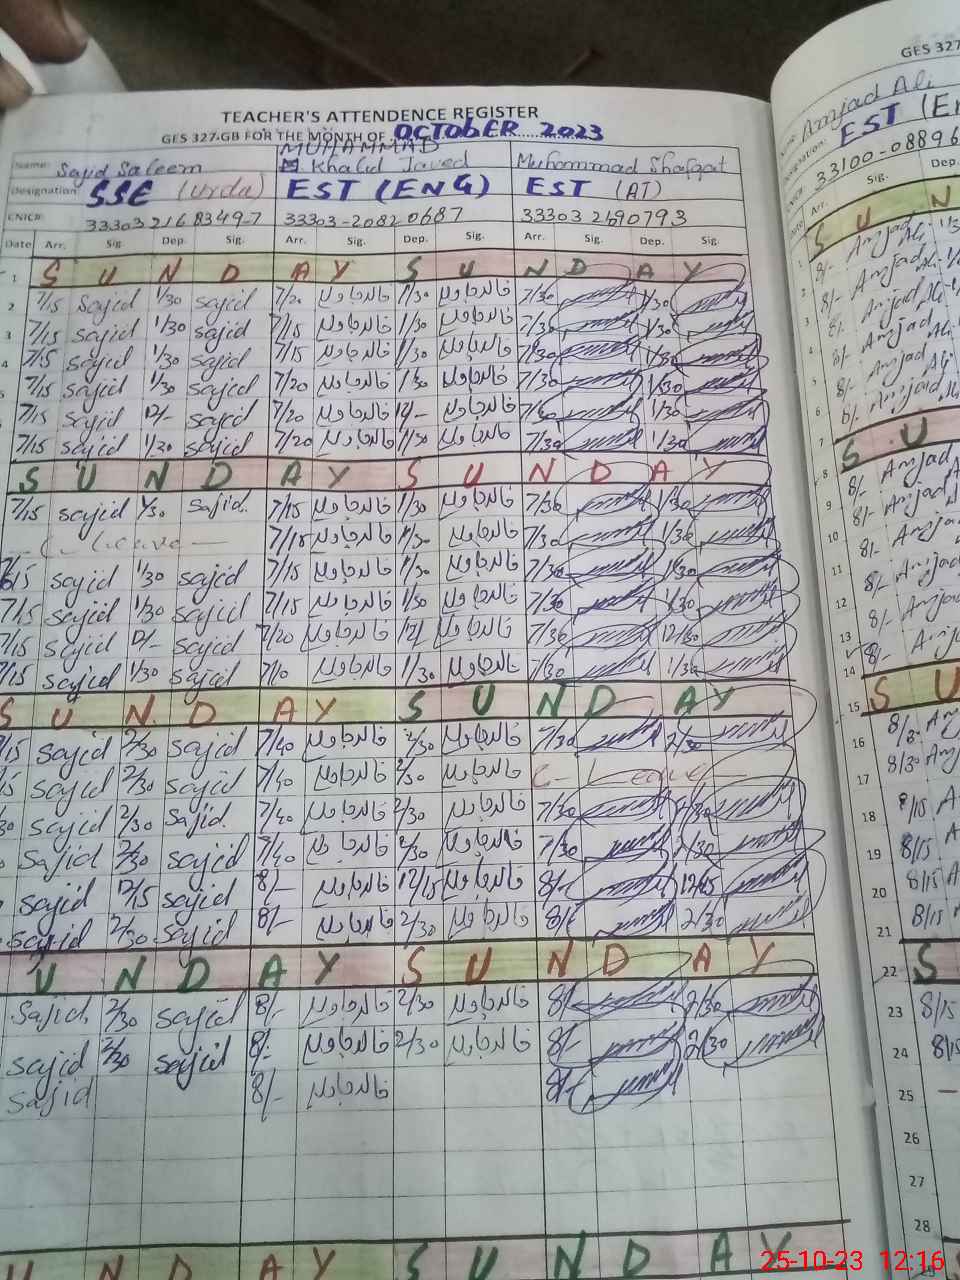 TEACHER'S ATTENDENCE REGISTER
GES 327-GB FOR THE MONTH OF OCTOBER 2023
Name: Sajid Saleem MUHAMMAD Khalid Javed Muhammad Shafqat
Designation: SSE (Urdu) EST (ENG) EST (AT)
CNIC#: 33303 2168349-7 33303-2082 0687 33303 2690793
Date Arr. Sig. Dep. Sig. Arr. Sig. Dep. Sig. Arr. Sig. Dep. Sig.
1 S U N D A Y S U N D A Y
2 7/15 Sajid 1/30 sajid 7/20 خالد جاوید 1/30 خالد جاوید 7/30 1/30
3 7/15 sajid 1/30 sajid 7/15 خالد جاوید 1/30 خالد جاوید 7/30 1/30
4 7/15 sajid 1/30 sajid 7/15 خالد جاوید 1/30 خالد جاوید 7/30 1/30
7/15 sajid 1/30 sajid 7/20 خالد جاوید 1/30 خالد جاوید 7/30 1/30
7/15 sajid 12/- sajid 7/20 خالد جاوید 12/- خالد جاوید 7/30 1/30
7/15 sajid 1/30 sajid 7/20 خالد جاوید 1/30 خالد جاوید 7/30 1/30
S U N D A Y S U N D A Y
7/15 sajid 1/30 sajid. 7/15 خالد جاوید 1/30 خالد جاوید 7/30 1/30
C Leave 7/15 خالد جاوید 1/30 خالد جاوید 7/30 1/30
7/15 sajid 1/30 sajid 7/15 خالد جاوید 1/30 خالد جاوید 7/30 1/30
7/15 sajid 1/30 sajid 7/15 خالد جاوید 1/30 خالد جاوید 7/30 1/30
7/15 sajid 12/- sajid 7/20 خالد جاوید 12/ خالد جاوید 7/30 12/30
7/15 sajid 1/30 sajid خالد جاوید 1/30 خالد جاوید 7/30 1/30
S U N D A Y S U N D A Y
/15 sajid 2/30 sajid 7/40 خالد جاوید 2/30 خالد جاوید 7/30 2/30
sajid 2/30 sajid 7/40 خالد جاوید 2/30 خالد جاوید C- Leave
sajid 2/30 Sajid. 7/40 خالد جاوید 2/30 خالد جاوید 7/30 2/30
Sajid 2/30 sajid 7/40 خالد جاوید 2/30 خالد جاوید 7/30 2/30
sajid 12/15 sajid 8/- خالد جاوید 12/15 خالد جاوید 8/- 12/15
sajid 2/30 sajid 8/- خالد جاوید 2/30 خالد جاوید 8/- 2/30
U N D A Y S U N D A Y
Sajid. 2/30 sajid 8/- خالد جاوید 2/30 خالد جاوید 8/- 2/30
sajid 2/30 sajid 8/- خالد جاوید 2/30 خالد جاوید 8/- 2/30
sajid 8/- خالد جاوید 8/-
U N D A Y S U N D A Y
GES 327
Amjad Ali
EST (En
33100-08896
Arr. Sig. Dep.
1 S U N
2 8/- Amjad Ali
3 8/- Amjad Ali
4 8/- Amjad Ali
5 8/- Amjad Ali
6 8/- Amjad Ali
7
8 S U
9 8/- Amjad
10 8/- Amjad
11
12 8/- Amjad
13 8/- Amjad
14 8/-
15 S U
16
17 8/30
18 8/15
19 8/15
20 8/15
21 8/15
22 S
23 8/15
24 8/15
25
26
27
28
29
25-10-23 12:16